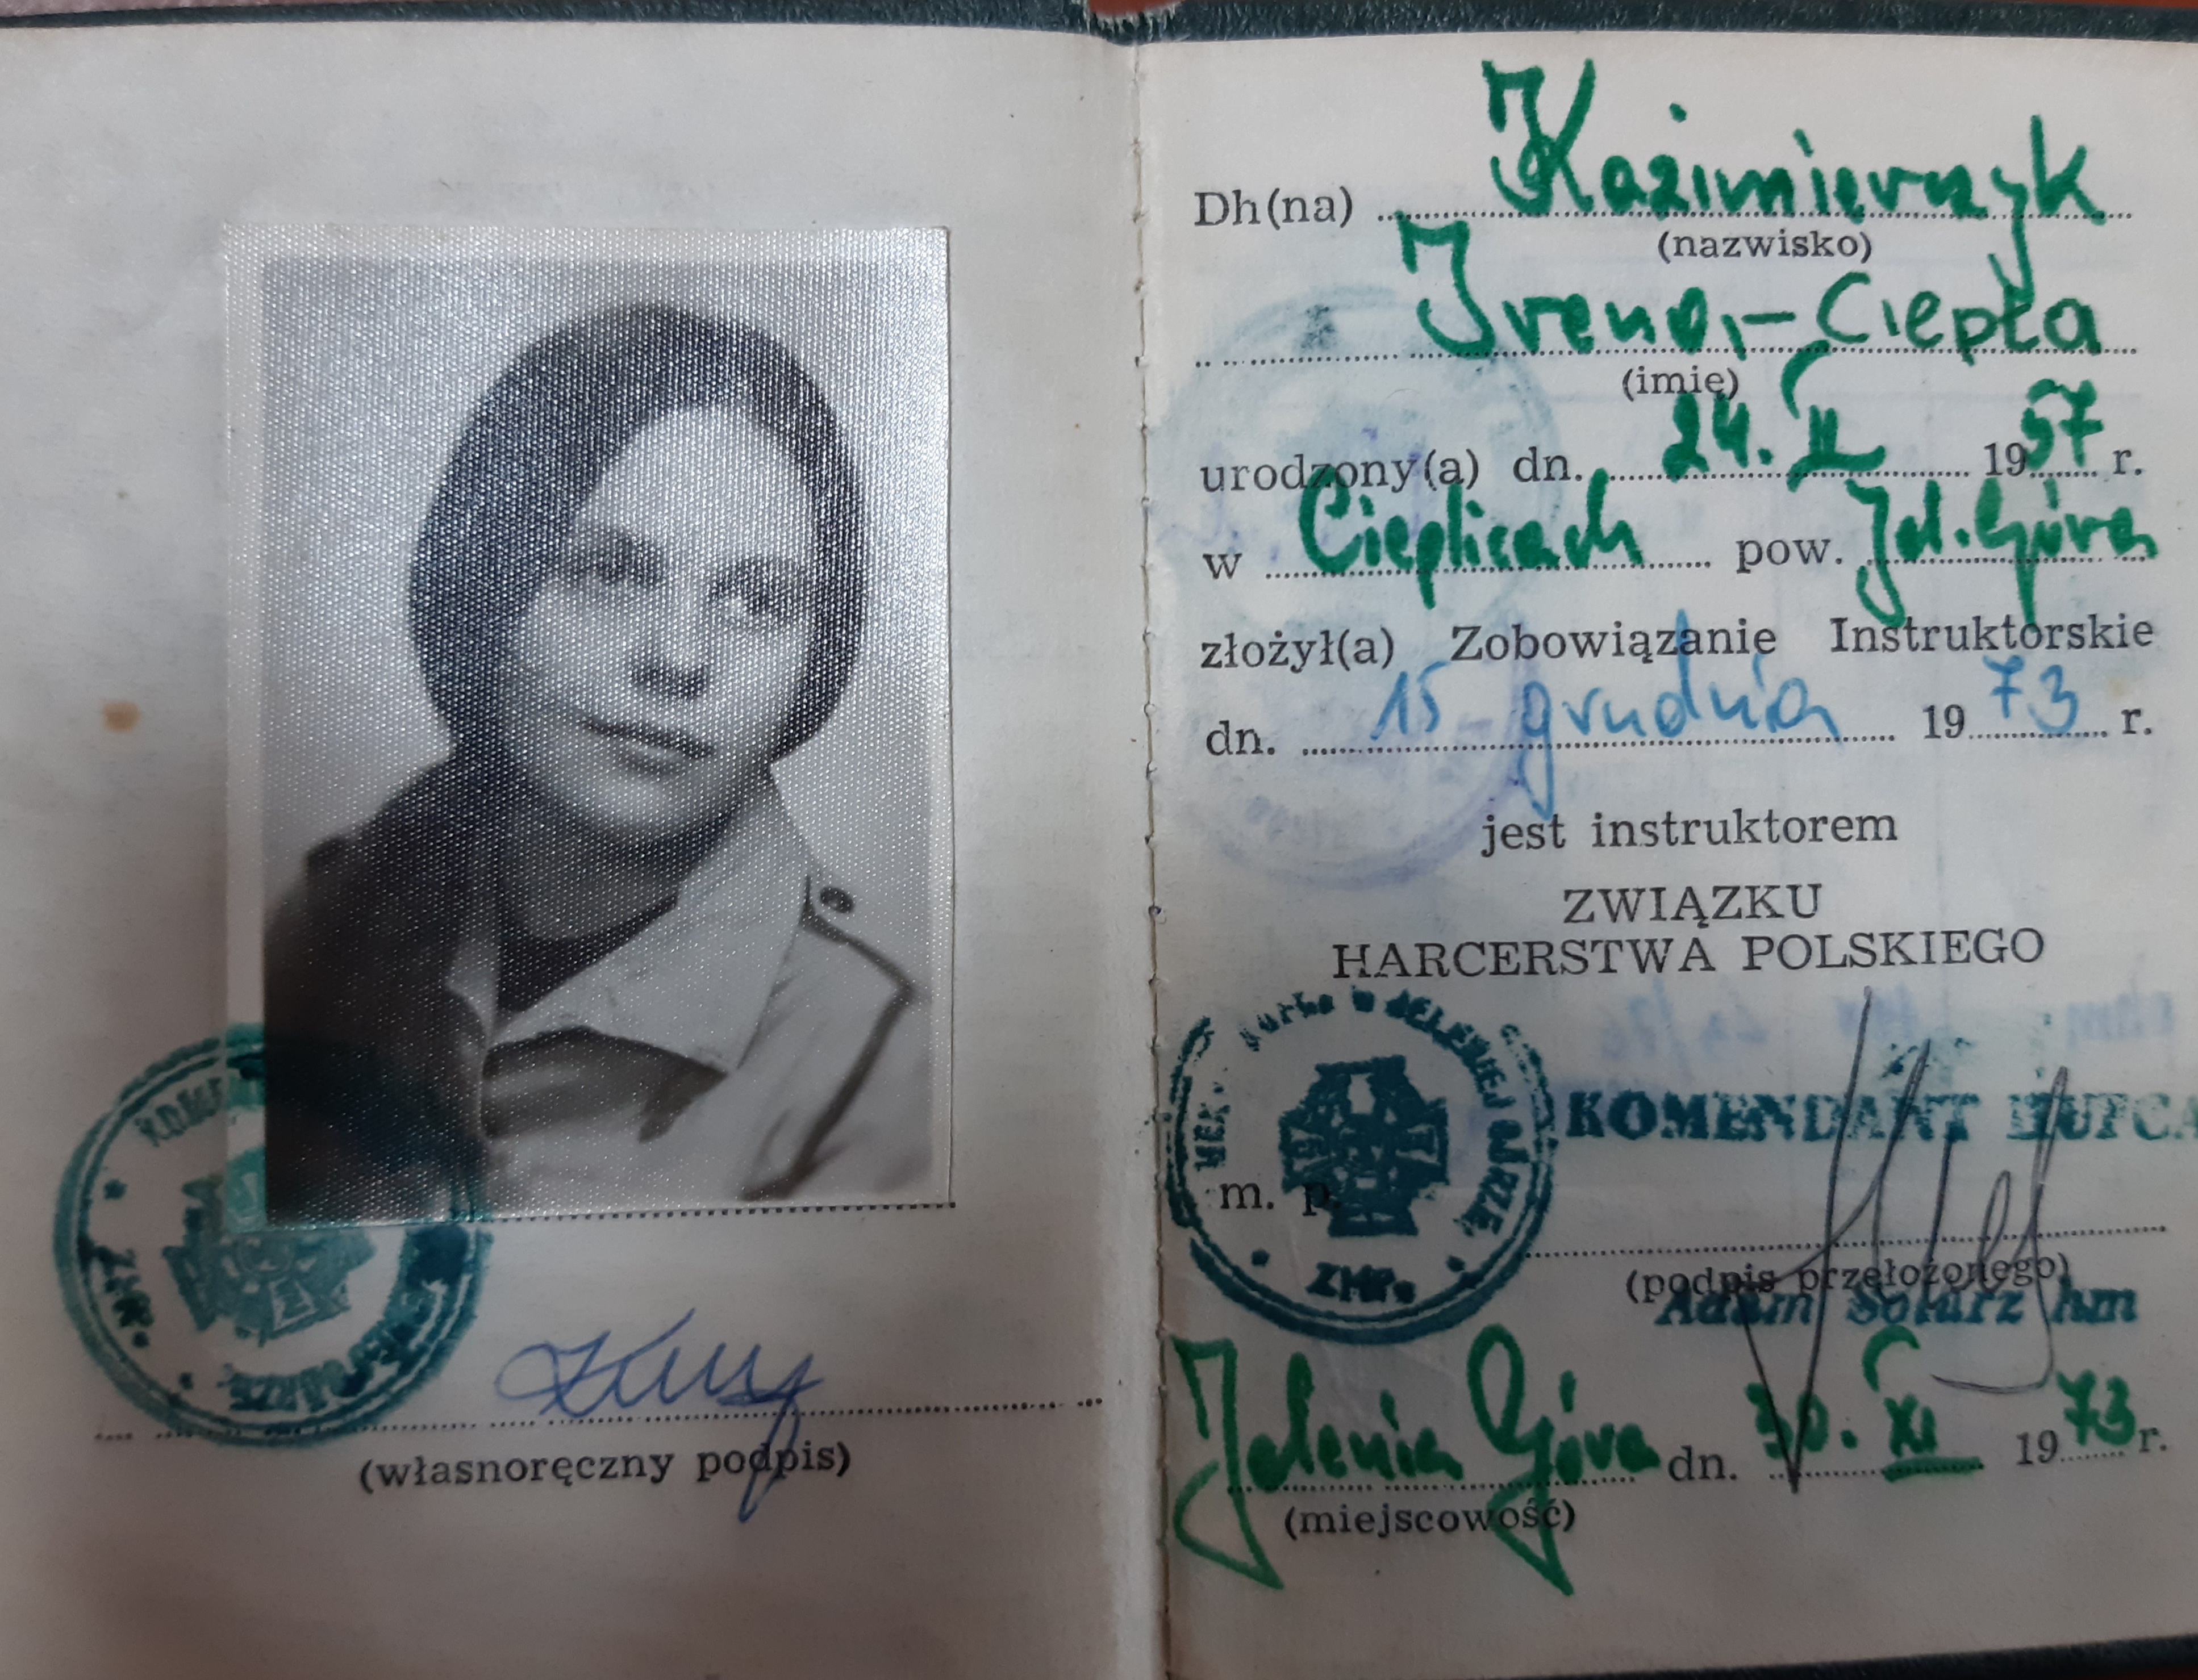 KOME
ZHP.
(własnoręczny podpis)
Dh(na) Kazimierczyk
(nazwisko)
Irena - Ciepła
(imię)
urodzony(a) dn. 24. II 1957 r.
w Cieplicach pow. Jel. Góra
złożył(a) Zobowiązanie Instruktorskie
dn. 15 grudnia 1973 r.
jest instruktorem
ZWIĄZKU
HARCERSTWA POLSKIEGO
w JELENIEJ GÓRZE
KOMENDANT HUFCA
m. p.
ZHP.
(podpis przełożonego)
Adam Solarz hm
Jelenia Góra dn. 30. XI 1973 r.
(miejscowość)